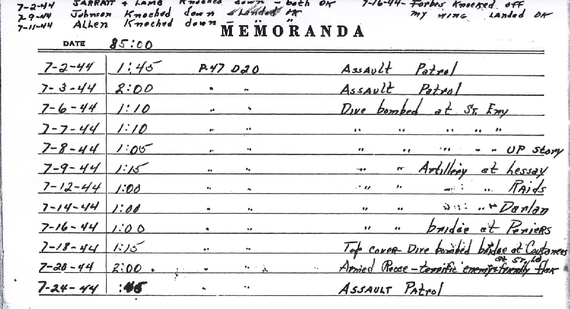 7-2-44 JARRATT + LAMB Knocked down - both OK 7-16-44- Forbes Knocked off
7-9-44 Johnson Knocked down - Landed OK my wing Landed OK
7-11-44 Allen Knocked down
MEMORANDA
DATE 85:00
7-2-44 1:45 P47 D20 Assault Patrol
7-3-44 2:00 " " Assault Patrol
7-6-44 1:10 " " Dive bombed at St. Eny
7-7-44 1:10 " " " " " "
7-8-44 1:05 " " " " " " UP story
7-9-44 1:15 " " " " Artillery at Lessay
7-12-44 1:00 " " " " " " Raids
7-14-44 1:00 " " " " " " Darlan
7-16-44 1:00 " " " " bridge at Periers
7-18-44 1:15 " " Top cover- Dive bombed bridge at Coutances
7-20-44 2:00 " " Armed Recce - terrific enemy + friendly flak at St. Lo-
7-24-44 :45 " " ASSAULT Patrol